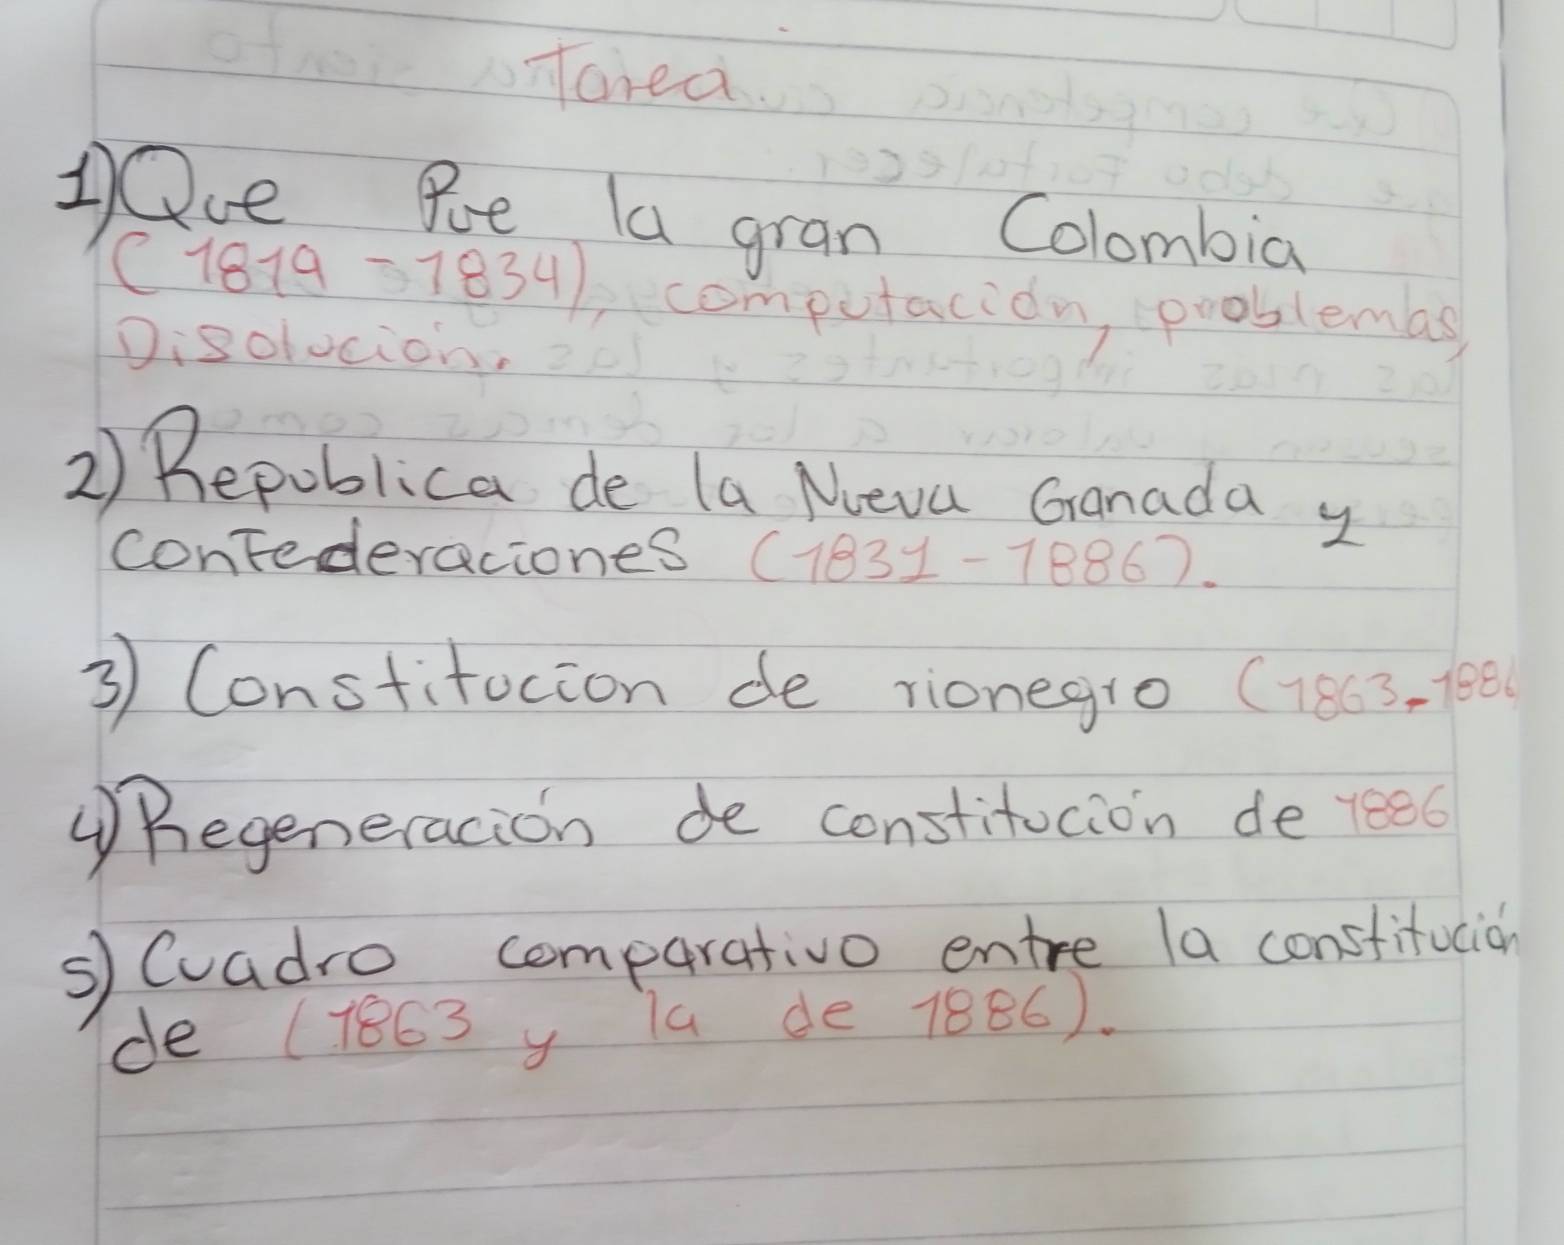 Tarea
1) Que Fue la gran Colombia
(1819 - 1834), computación, problemas,
Disolución.
2) Republica de la Nueva Granada y
confederaciones (1831 - 1886).
3) Constitucion de rionegro (1863-1886
4) Regeneración de constitución de 1886
5) Cuadro comparativo entre la constitución
de (1863 y la de 1886).